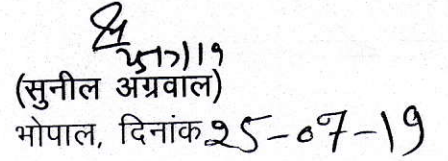 25/7/19
(सुनील अग्रवाल)
भोपाल, दिनांक 25-07-19